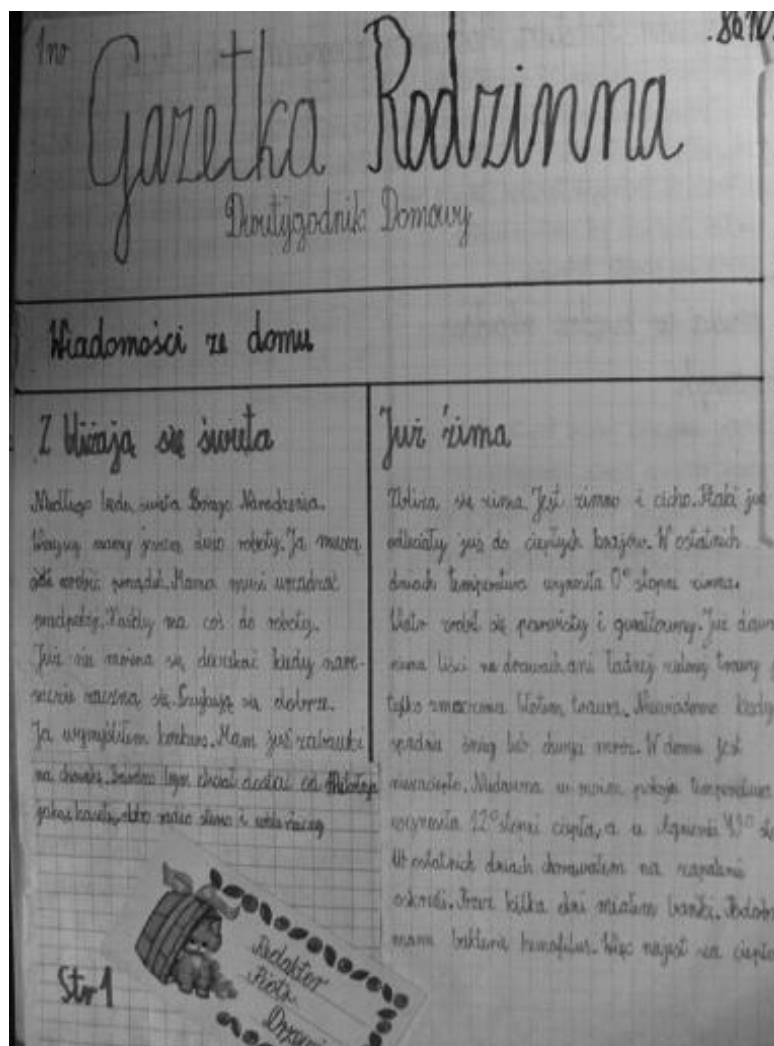 1 nr
Gazetka Rodzinna
Dwutygodnik Domowy
Wiadomości ze domu
Z bliżają się święta
Niedługo będą święta Bożego Narodzenia.
mamy jeszcze dużo roboty. Ja muszę
zrobić porządek. Mama musi urządzić
przedpokój. Każdy ma coś do roboty.
Już nie można się doczekać kiedy nare-
szcie zaczną się. Szykują się dobrze.
Ja wymyśliłem konkurs. Mam już zabawki
na choinkę. bym chciał dostać od Mikołaja
jakąś kasetę, albo radio stereo i
Str 1
Redaktor
Piotr
Już zima
Zbliża się zima. Jest zimno i cicho. Ptaki już
odleciały już do ciepłych krajów. W ostatnich
dniach temperatura wynosiła 0° stopni zimna.
Wiatr zrobił się porwisty i gwałtowny. Już dawno
niema liści na drzewach ani ładnej zielonej trawy
tylko zmoczona błotem trawa. Niewiadomo kiedy
spadnie śnieg lub chwyci mróz. W domu jest
nieza ciepło. Niedawno w moim pokoju temperatura
wynosiła 12° stopni ciepła, a u Agnieszki
W ostatnich dniach chorowałem na zapalenie
oskrzeli. Przez kilka dni miałem bańki. Podobno
mam bakterie hemofilus. Więc niejest za ciepło